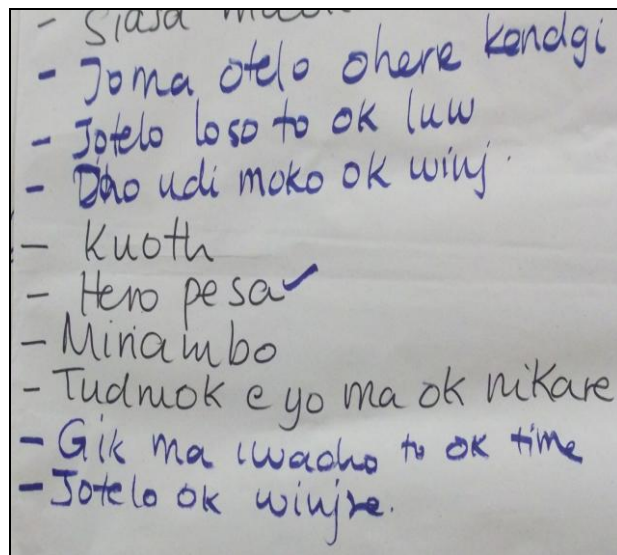 - Siasa
- Joma otelo ohere kendgi
- Jotelo loso to ok luw
- Dho udi moko ok winj.
- Kuoth
- Hero pesa ✓
- Miriambo
- Tudruok e yo ma ok nikare
- Gik ma iwacho to ok time
- Jotelo ok winjre.